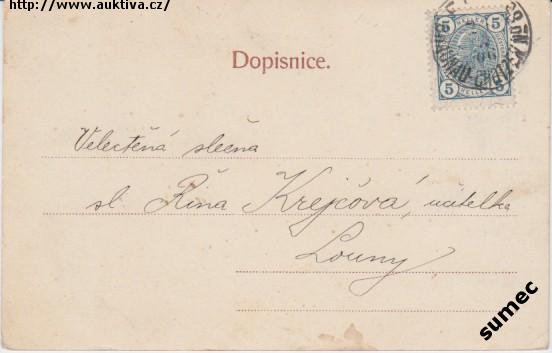 http://www.auktiva.cz/
Dopisnice.
5 5
5 5
HELLER
Velectěná slečna
sl. Řina Krejčová, učitelka
Louny
sumec